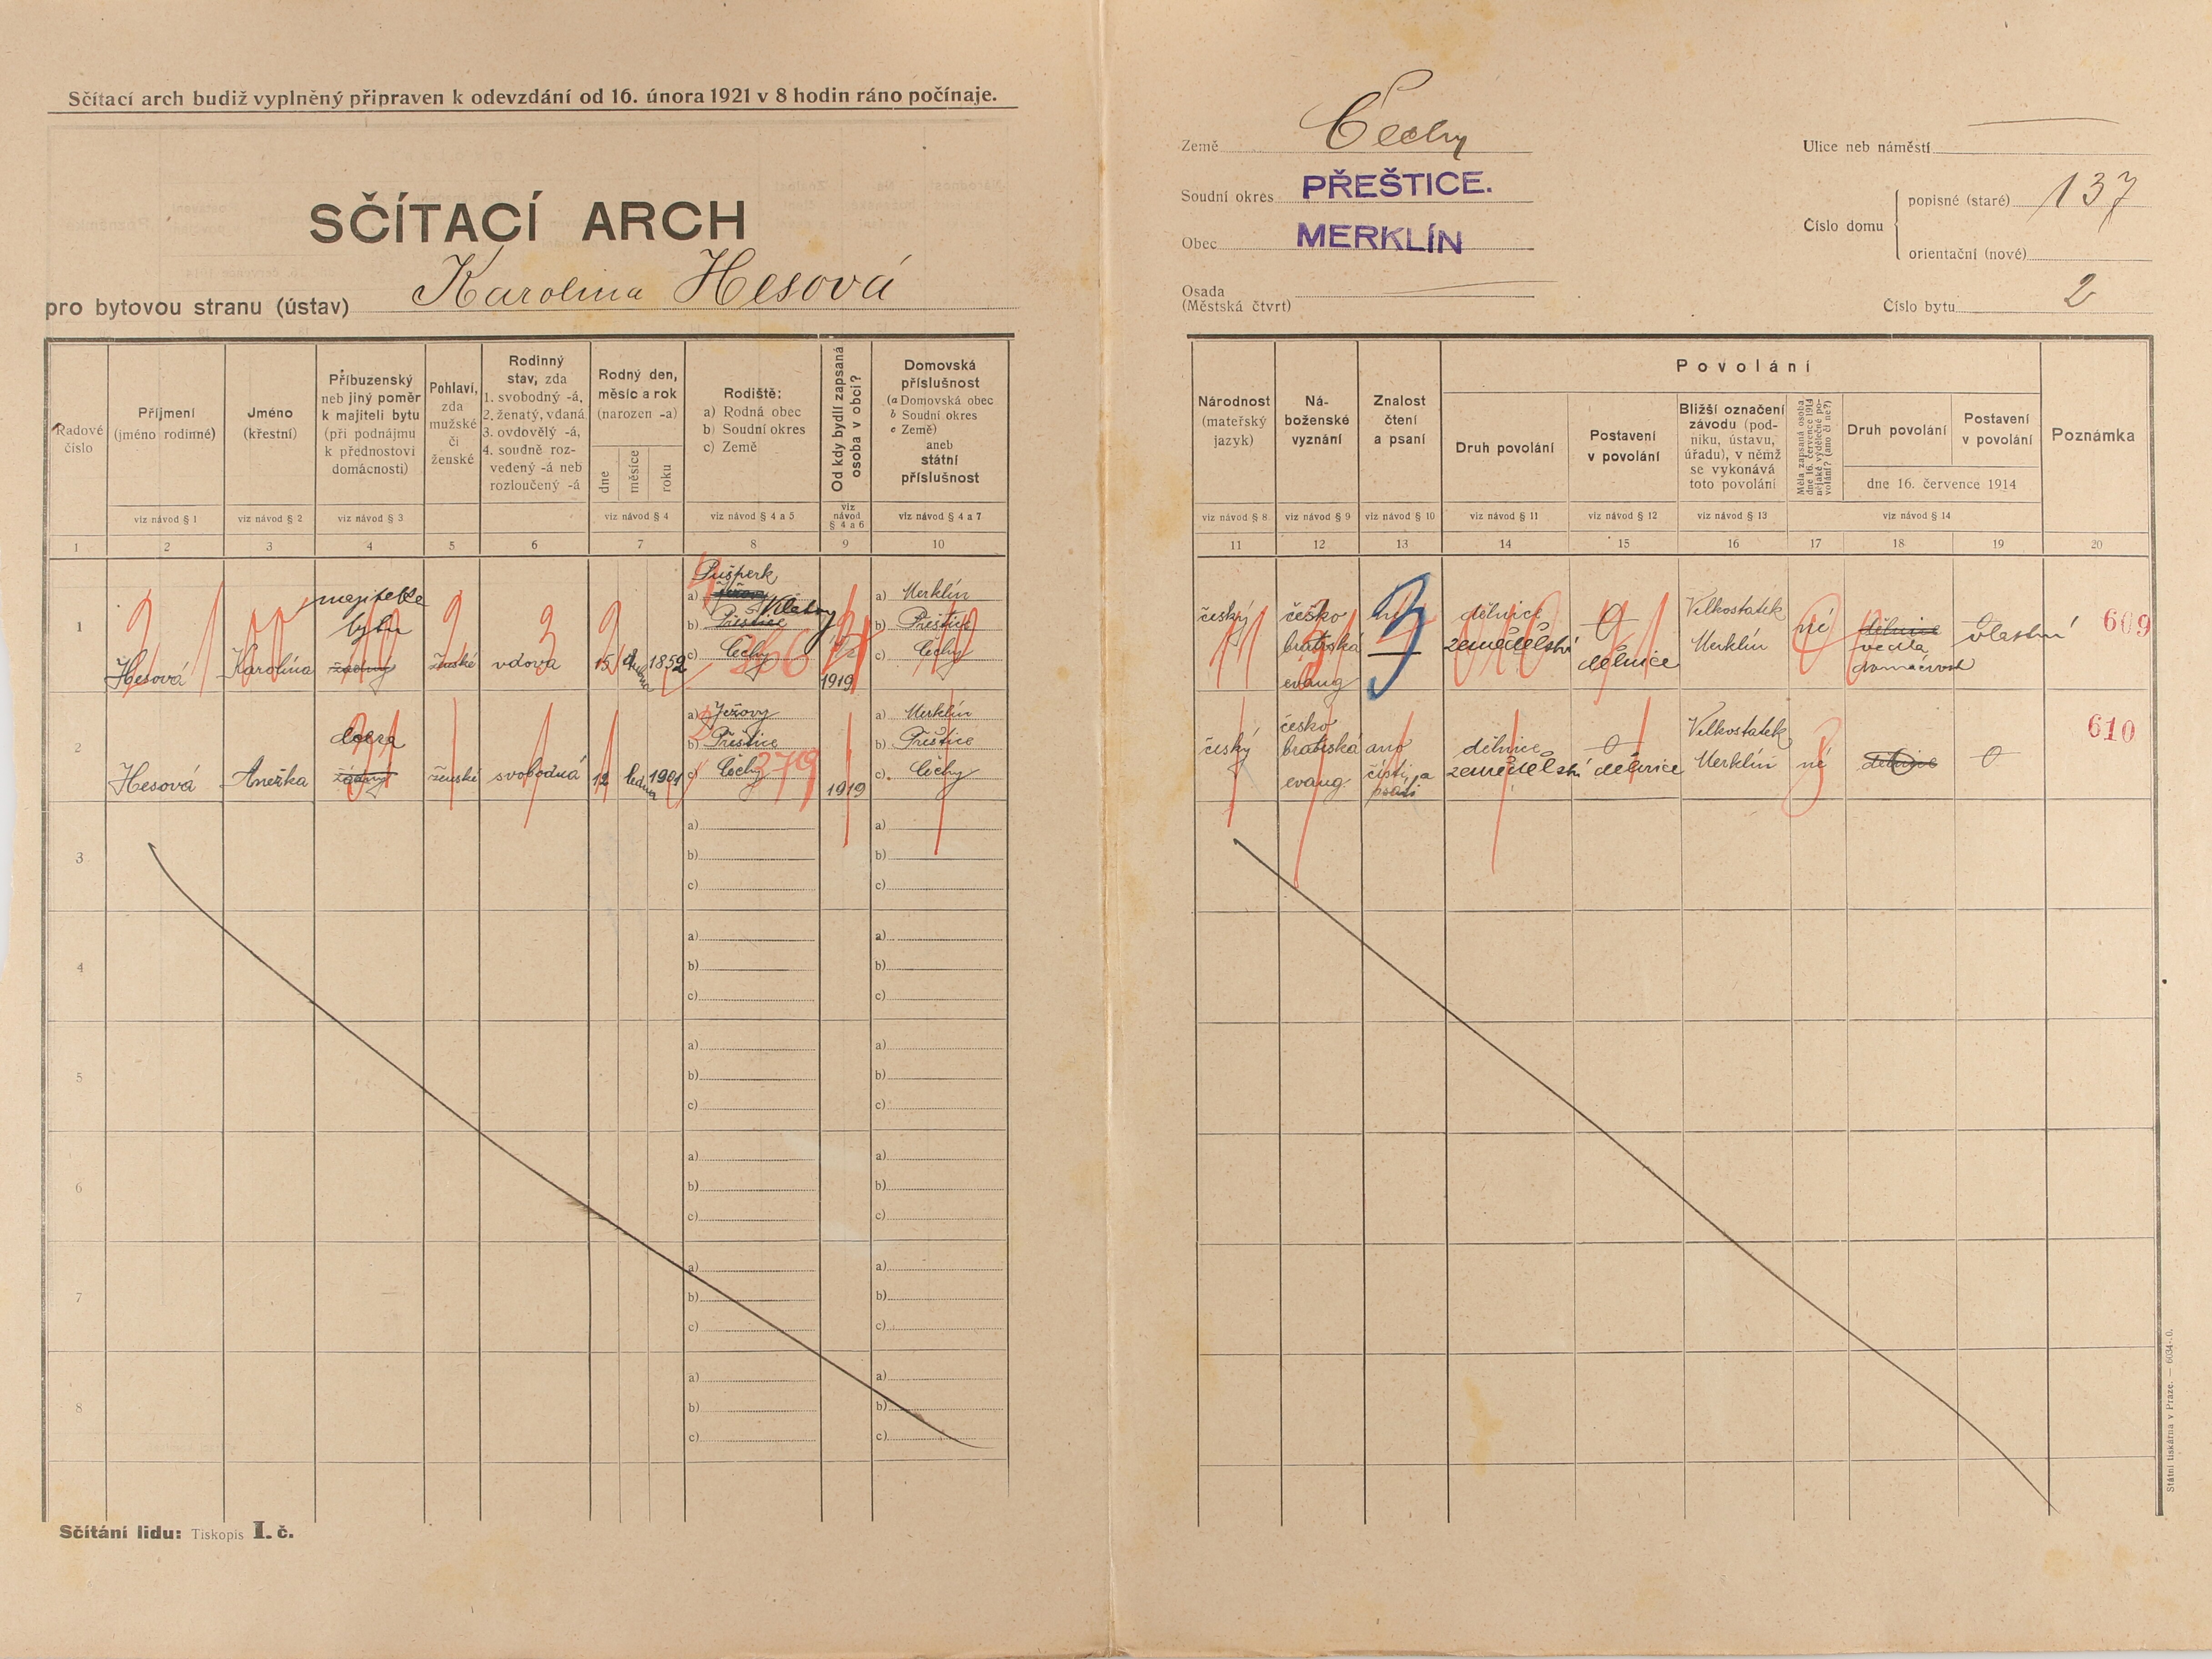 Sčítací arch budiž vyplněný připraven k odevzdání od 16. února 1921 v 8 hodin ráno počínaje.
SČÍTACÍ ARCH
pro bytovou stranu (ústav) Karolina Hesová
Země Čechy
Soudní okres PŘEŠTICE.
Obec MERKLÍN
Osada
(Městská čtvrt)
Ulice neb náměstí
Číslo domu
popisné (staré) 137
orientační (nové)
Číslo bytu 2
Řadové
číslo
Příjmení
(jméno rodinné)
Jméno
(křestní)
Příbuzenský
neb jiný poměr
k majiteli bytu
(při podnájmu
k přednostovi
domácnosti)
Pohlaví,
zda
mužské
či
ženské
Rodinný
stav, zda
1. svobodný -á,
2. ženatý, vdaná
3. ovdovělý -á,
4. soudně roz-
vedený -á neb
rozloučený -á
Rodný den,
měsíc a rok
(narozen -a)
dne
měsíce
roku
Rodiště:
a) Rodná obec
b) Soudní okres
c) Země
Od kdy bydlí zapsaná
osoba v obci?
Domovská
příslušnost
(a Domovská obec
b Soudní okres
c Země)
aneb
státní
příslušnost
viz návod § 1
viz návod § 2
viz návod § 3
viz návod § 4
viz návod § 4 a 5
viz
návod
§ 4 a 6
viz návod § 4 a 7
1 2 3 4 5 6 7 8 9 10
Národnost
(mateřský
jazyk)
Ná-
boženské
vyznání
Znalost
čtení
a psaní
Povolání
Druh povolání
Postavení
v povolání
Bližší označení
závodu (pod-
niku, ústavu,
úřadu), v němž
se vykonává
toto povolání
Měla zapsaná osoba
dne 16. července 1914
nějaké výdělečné po-
volání? (ano či ne?)
Druh povolání
Postavení
v povolání
dne 16. července 1914
Poznámka
viz návod § 8
viz návod § 9
viz návod § 10
viz návod § 11
viz návod § 12
viz návod § 13
viz návod § 14
11 12 13 14 15 16 17 18 19 20
1
Hesová
Karolína
majitelka
bytu
ženské
vdova
15
1852
a) Pušperk
b) Přeštice Klatovy
c) Čechy
266
1919
a) Merklín
b) Přeštice
c) Čechy
český
česko
bratrská
evang
3
dělnice
zemědělství
0
dělnice
Velkostatek
Merklín
né
dělnice
vedla
domácnost
vlastní
609
2
Hesová
Anežka
dcera
ženské
svobodná
12
ledna
1901
a) Ježovy
b) Přeštice
c) Čechy
379
1919
a) Merklín
b) Přeštice
c) Čechy
český
česko
bratrská
evang.
ano
čísti a
psáti
dělnice
zemědělství
0
dělnice
Velkostatek
Merklín
né
dělnice
0
610
3
a)
b)
c)
a)
b)
c)
4
a)
b)
c)
a)
b)
c)
5
a)
b)
c)
a)
b)
c)
6
a)
b)
c)
a)
b)
c)
7
a)
b)
c)
a)
b)
c)
8
a)
b)
c)
a)
b)
c)
Sčítání lidu: Tiskopis I. č.
Státní tiskárna v Praze. — 6034-0.